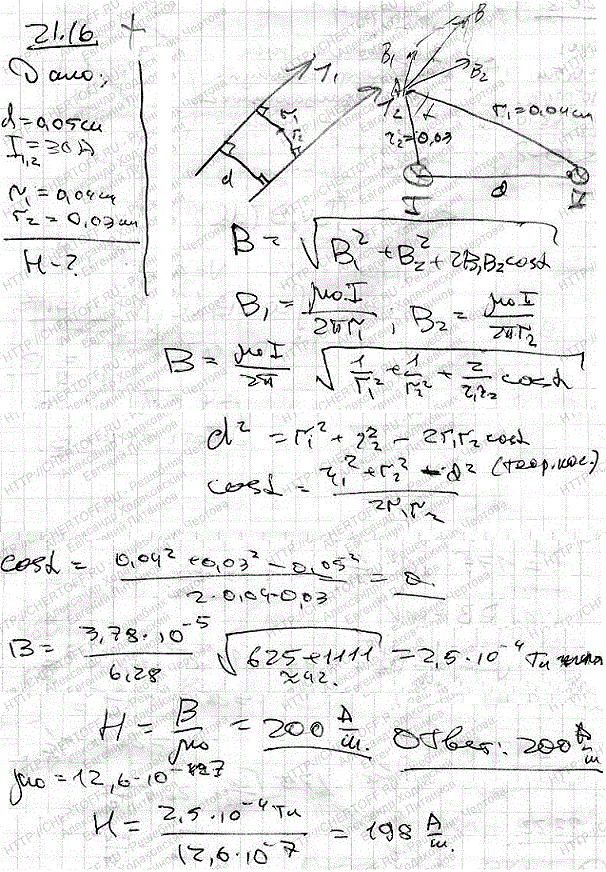 21.16 +
Дано:
d = 0,05 м
I₁,₂ = 30 А
r₁ = 0,04 м
r₂ = 0,03 м
H - ?
I₁
I₂
r₁
r₂
d
B
B₁
B₂
A
α
r₁ = 0,04 м
r₂ = 0,03
d
B = √(B₁² + B₂² + 2B₁B₂cosα)
B₁ = μ₀I/2πr₁ ; B₂ = μ₀I/2πr₂
B = μ₀I/2π √(1/r₁² + 1/r₂² + 2/r₁r₂ cosα)
d² = r₁² + r₂² - 2r₁r₂cosα
cosα = (r₁² + r₂² - d²)/2r₁r₂ (теор. кос.)
cosα = (0,04² + 0,03² - 0,05²)/(2·0,04·0,03) = 0
B = 3,78·10⁻⁵/6,28 √(625+1111) = 2,5·10⁻⁴ Тл
≈42.
H = B/μ₀ = 200 А/м. Ответ: 200 А/м
μ₀ = 12,6·10⁻⁷
H = 2,5·10⁻⁴ Тл/12,6·10⁻⁷ = 198 А/м.
HTTP://CHERTOFF.RU - РГРТУ